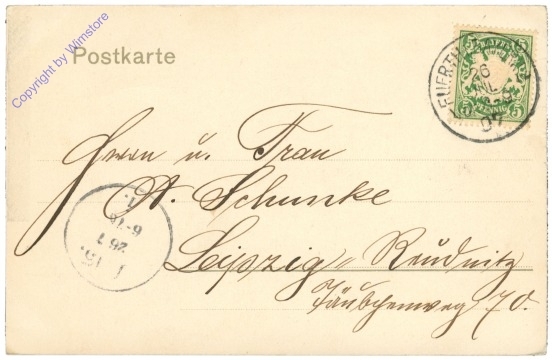 Copyright by Wimstore
Postkarte
5 BAYERN 5
5 PFENNIG 5
26
07
Herrn u. Frau
A. Schunke
Leipzig-Reudnitz
Täubchenweg 70.
26 7